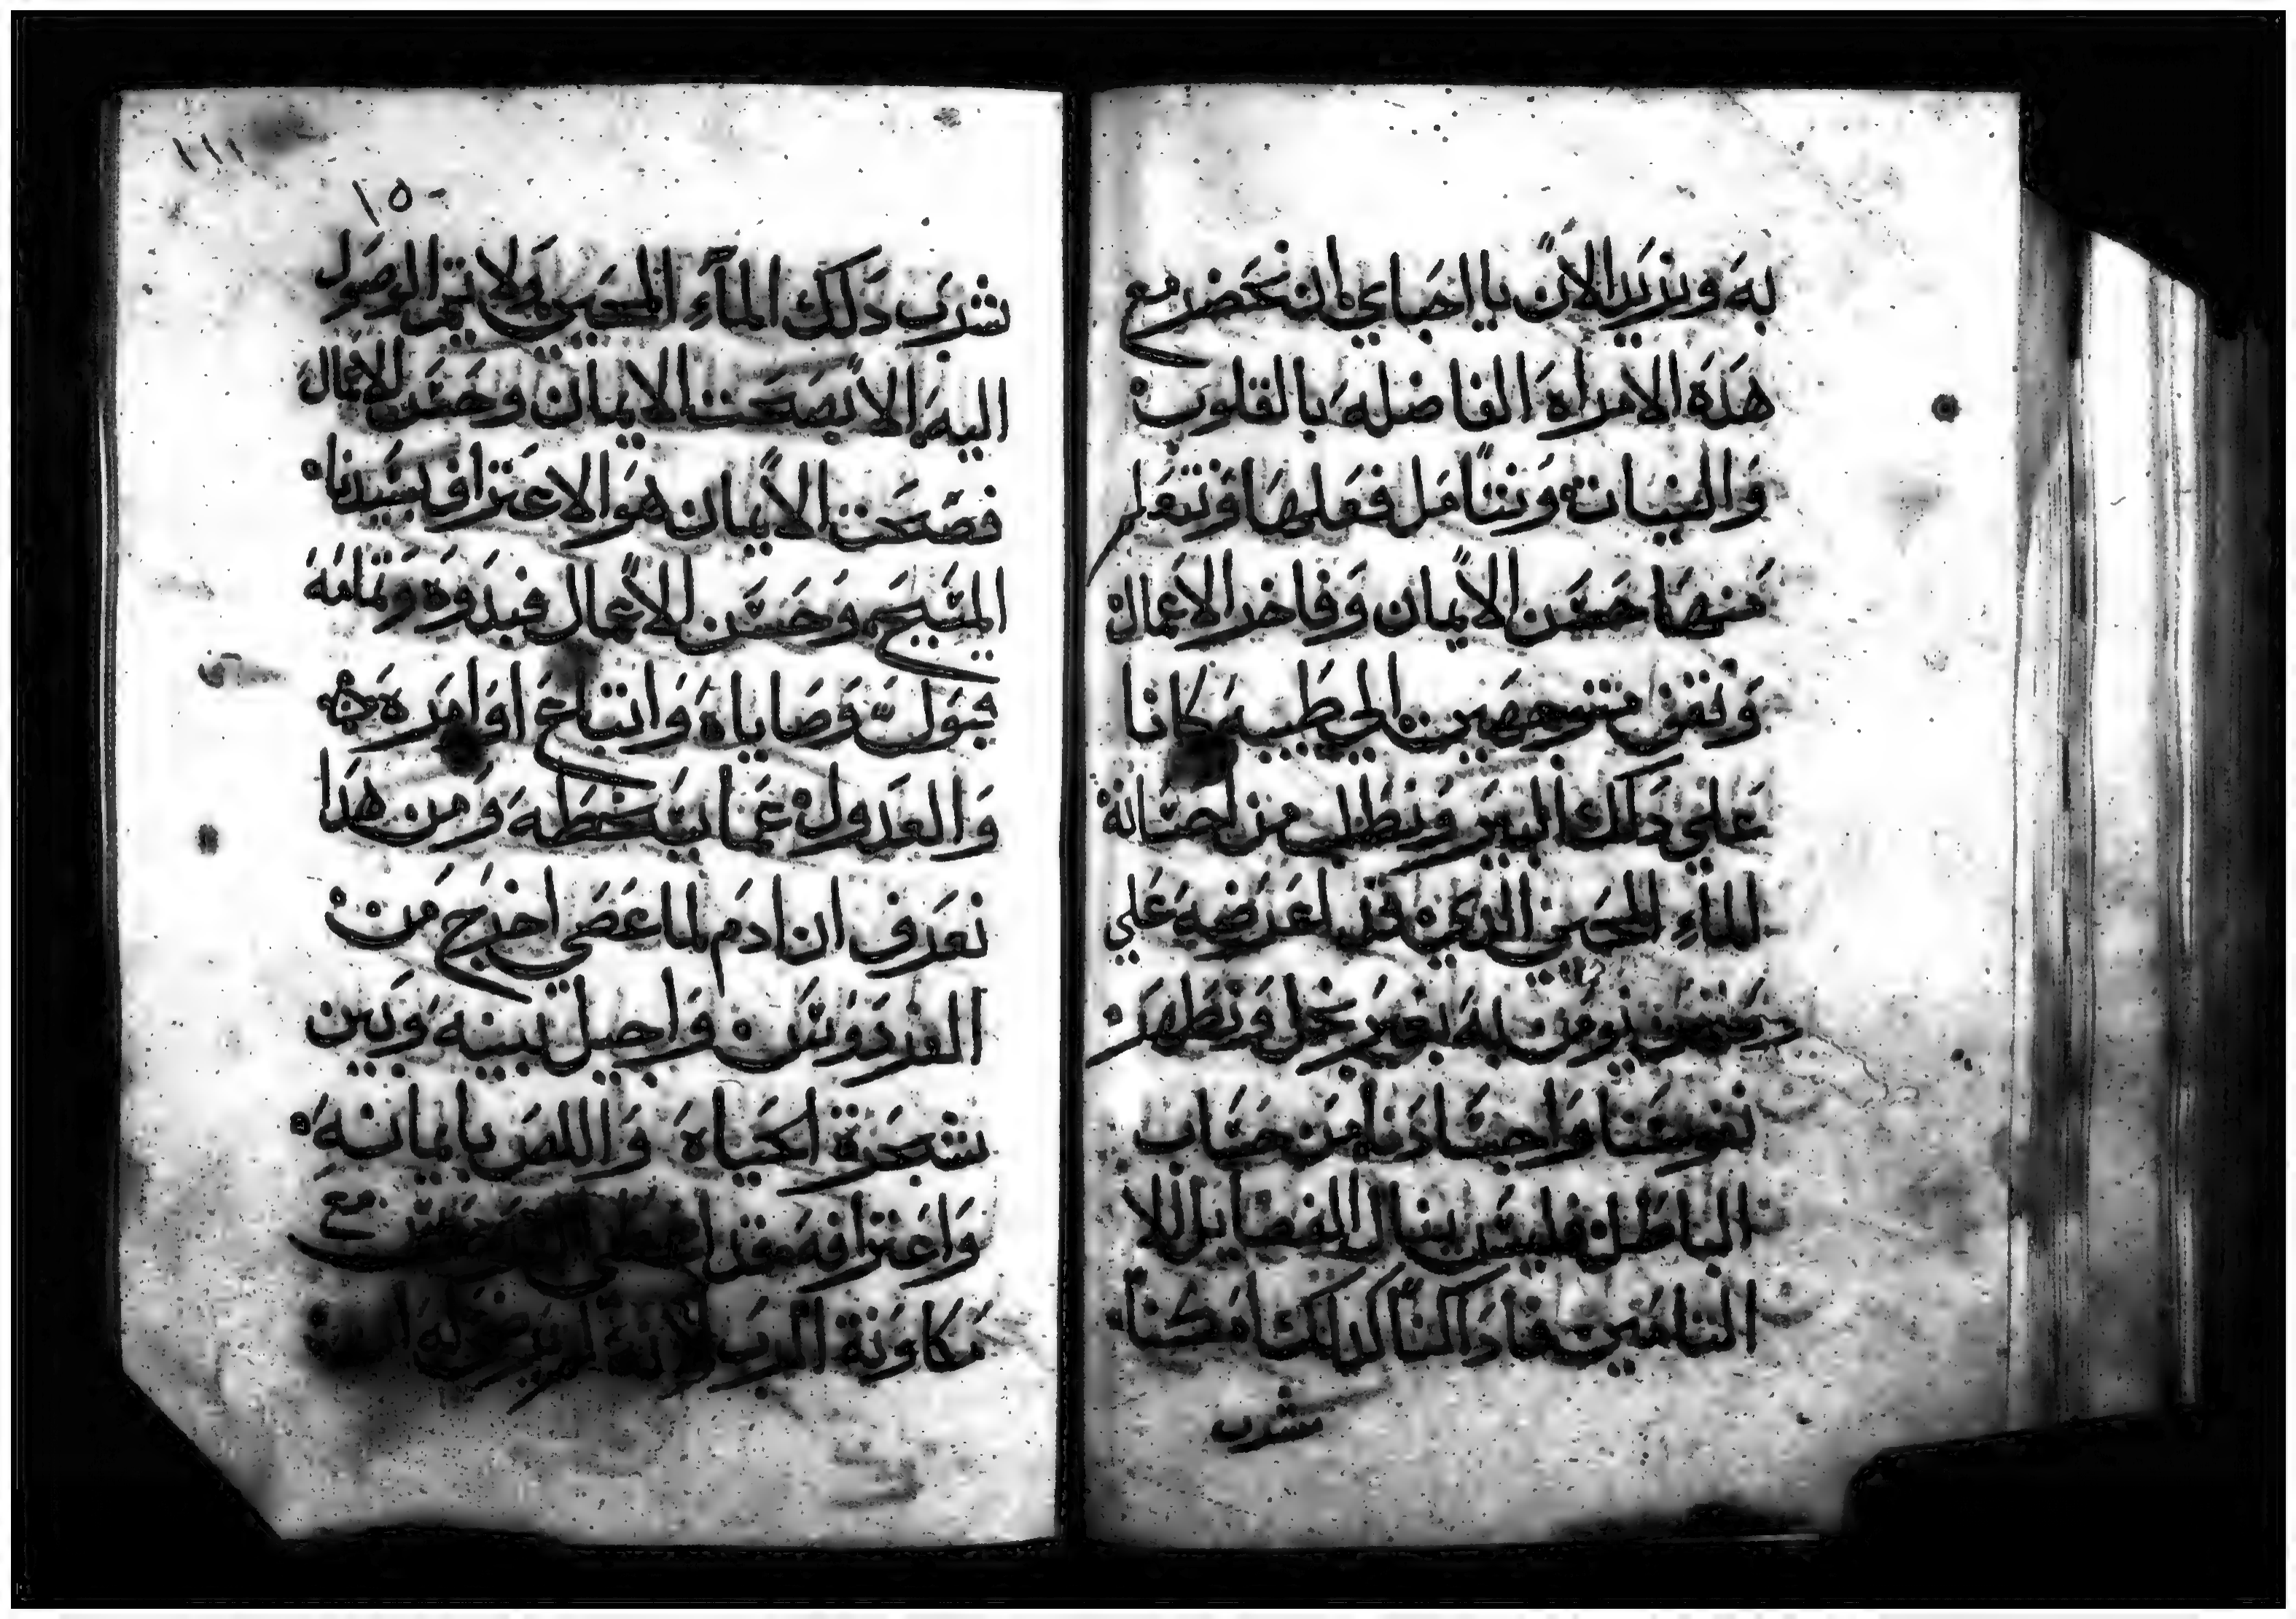 به ونريد الان يا احباي ان نحضر مع
هذه الامراه الفاضله بالقلوب
والنيات ونتامل فعلها ونتعلم
منها حسن الايمان وفاخر الاعمال
ونقف متوجهين الي طيبه كانا
علي ذلك البير ونطلب من احسانه
الماء المحيي الذي قد اعرضه علي
يومن به بغير بخل ونطهر
نفوسنا واجسادنا من حساب
الباطل فليس ينال الفضايل الا
التامين فاذا كنا كذلك امكننا
شرب
١١١
١٥٠
شرب ذلك الماء المحيي ولا يتم الوصول
اليه الا بصحت الايمان وحسن الاعمال
فصحت الايمان هو الاعتراف بسيدنا
المسيح وحسن الاعمال فبدوه وتمامه
قبول وصاياه واتباع اوامره
والعدول عما يسخطه ومن هذا
نعرف ان ادم لما عصي اخرج من
الفردوس واحيل بينه وبين
شجرة الحياه واللص بايمانه
واعترافه مع
مكاونة الرب لانه لم